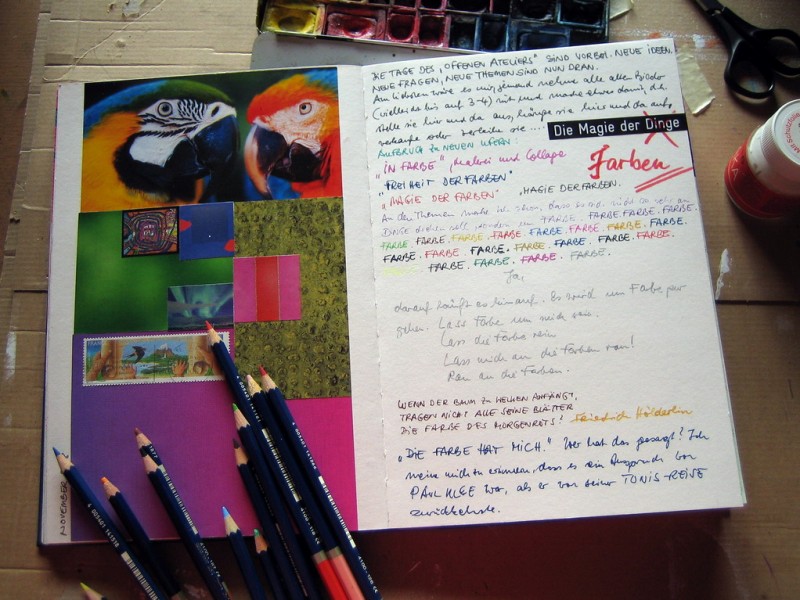 DIE TAGE DES „OFFENEN ATELIERS" SIND VORBEI. NEUE IDEEN.
NEUE FRAGEN, NEUE THEMEN SIND NUN DRAN.
Am liebsten wäre es mir, jemand nehme alle alten Bilder
(vielleicht bis auf 3-4) mit und mache etwas damit, d.h.
stelle sie hier und da aus, hänge sie hier und da auf,
verkaufe oder verleihe sie ....
Die Magie der Dinge
Farben
AUFBRUCH ZU NEUEN UFERN:
"IN FARBE", Malerei und Collage
"FREIHEIT DER FARBEN"
"MAGIE DER FARBEN" , MAGIE DER FARBEN.
An den Themen merke ich schon, dass es mir nicht so sehr um
Dinge selbst, sondern um FARBE. FARBE. FARBE. FARBE.
FARBE. FARBE. FARBE. FARBE. FARBE. FARBE. FARBE. FARBE.
FARBE. FARBE. FARBE. FARBE. FARBE. FARBE. FARBE.
FARBE. FARBE. FARBE. FARBE.
Ja,
darauf läuft es hinaus. Es wird um Farbe pur
gehen. Lass Farbe um mich sein.
Lass die Farbe rein
Lass mich an die Farben ran!
Ran an die Farben.
WENN DER BAUM ZU WELKEN ANFÄNGT,
TRAGEN NICHT ALLE SEINE BLÄTTER
DIE FARBE DES MORGENROTS? Friedrich Hölderlin
„DIE FARBE HAT MICH." Wer hat das gesagt? Ich
meine mich zu erinnern, dass es ein Ausspruch von
PAUL KLEE war, als er von seiner TUNIS-REISE
zurückkehrte.
NOVEMBER